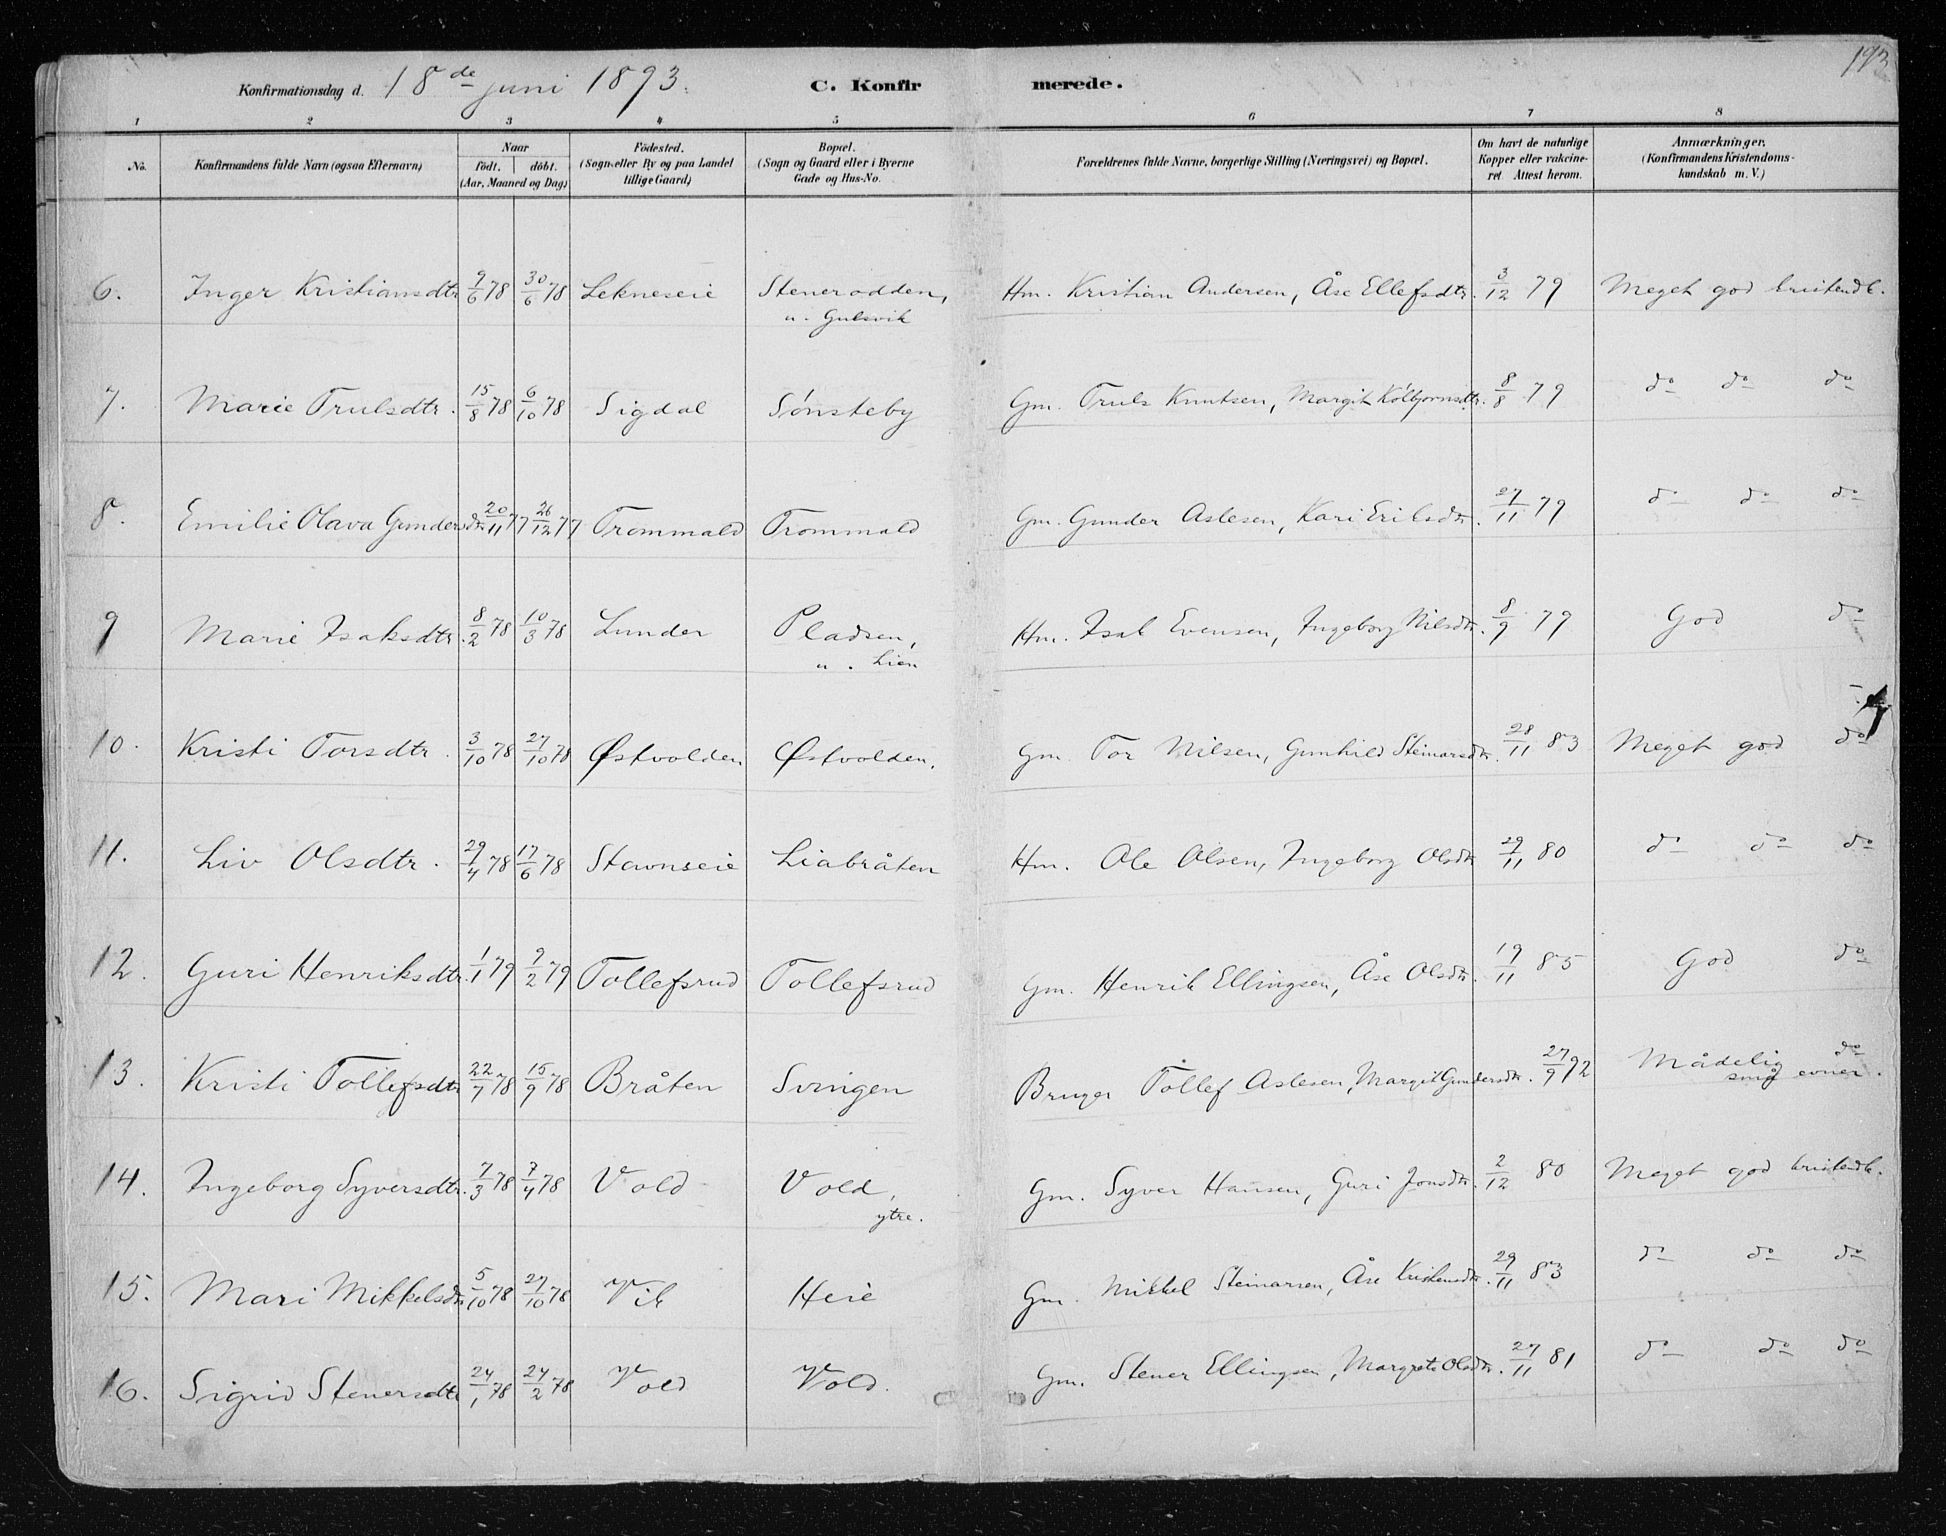 193
Konfirmationsdag d. 18de juni 1893. C. Konfirmerede.
1 2 3 4 5 6 7 8
No. Konfirmandens fulde Navn (ogsaa Efternavn) Naar födt. döbt. (Aar, Maaned og Dag) Födested. (Sogn eller By og paa Landet tillige Gaard) Bopæl. (Sogn og Gaard eller i Byerne Gade og Hus-No. Forældrenes fulde Navne, borgerlige Stilling (Næringsvei) og Bopæl. Om havt de naturlige Kopper eller vakcineret Attest herom. Anmærkninger. (Konfirmandens Kristendomskundskab m. V.)
6. Inger Kristiansdtr 9/6 78 30/6 78 Lekneseie Stenerodden, u. Gulsvik Hm. Kristian Andersen, Åse Ellefsdtr. 3/12 79 Meget god kristendk.
7. Marie Trulsdtr. 15/8 78 6/10 78 Sigdal Sønsteby Gm. Truls Knutsen, Margit Kolbjørnsdtr. 8/8 79 do do do
8. Emilie Olava Gundersdtr 20/11 77 26/12 77 Trommald Trommald Gm. Gunder Aslesen, Kari Eriksdtr. 27/11 79 do do do
9 Marie Isaksdtr. 8/2 78 10/3 78 Lunder Pladsen, u. Lien Hm. Isak Evensen, Ingeborg Nilsdtr. 8/9 79 God do
10. Kristi Torsdtr. 3/10 78 27/10 78 Østvolden Østvolden. Gm. Tor Nilsen, Gunhild Steinarsdtr. 28/11 83 Meget god do
11. Liv Olsdtr. 29/4 78 17/6 78 Stavnseie Liabråten Hm. Ole Olsen, Ingeborg Olsdtr 29/11 80 do do do
12. Guri Henriksdtr. 1/1 79 9/2 79 Tollefsrud Tollefsrud Gm. Henrik Ellingsen, Åse Olsdtr. 19/11 85 God do
13. Kristi Tollefsdtr 22/7 78 15/9 78 Bråten Svingen Bruger Tollef Aslesen, Margit Gundersdtr. 27/9 92 Mådelig do små evner.
14. Ingeborg Syversdtr. 7/3 78 7/4 78 Vold Vold, ytre. Gm. Syver Hansen, Guri Jonsdtr. 2/12 80 Meget god kristendk.
15. Mari Mikkelsdtr 5/10 78 27/10 78 Vik Heie Gm. Mikkel Steinarsen, Åse Kristensdtr. 29/11 83 do do do
16. Sigrid Stenersdtr 24/1 78 24/2 78 Vold Vold. Gm. Stener Ellingsen, Margrete Olsdtr. 27/11 81 do do do